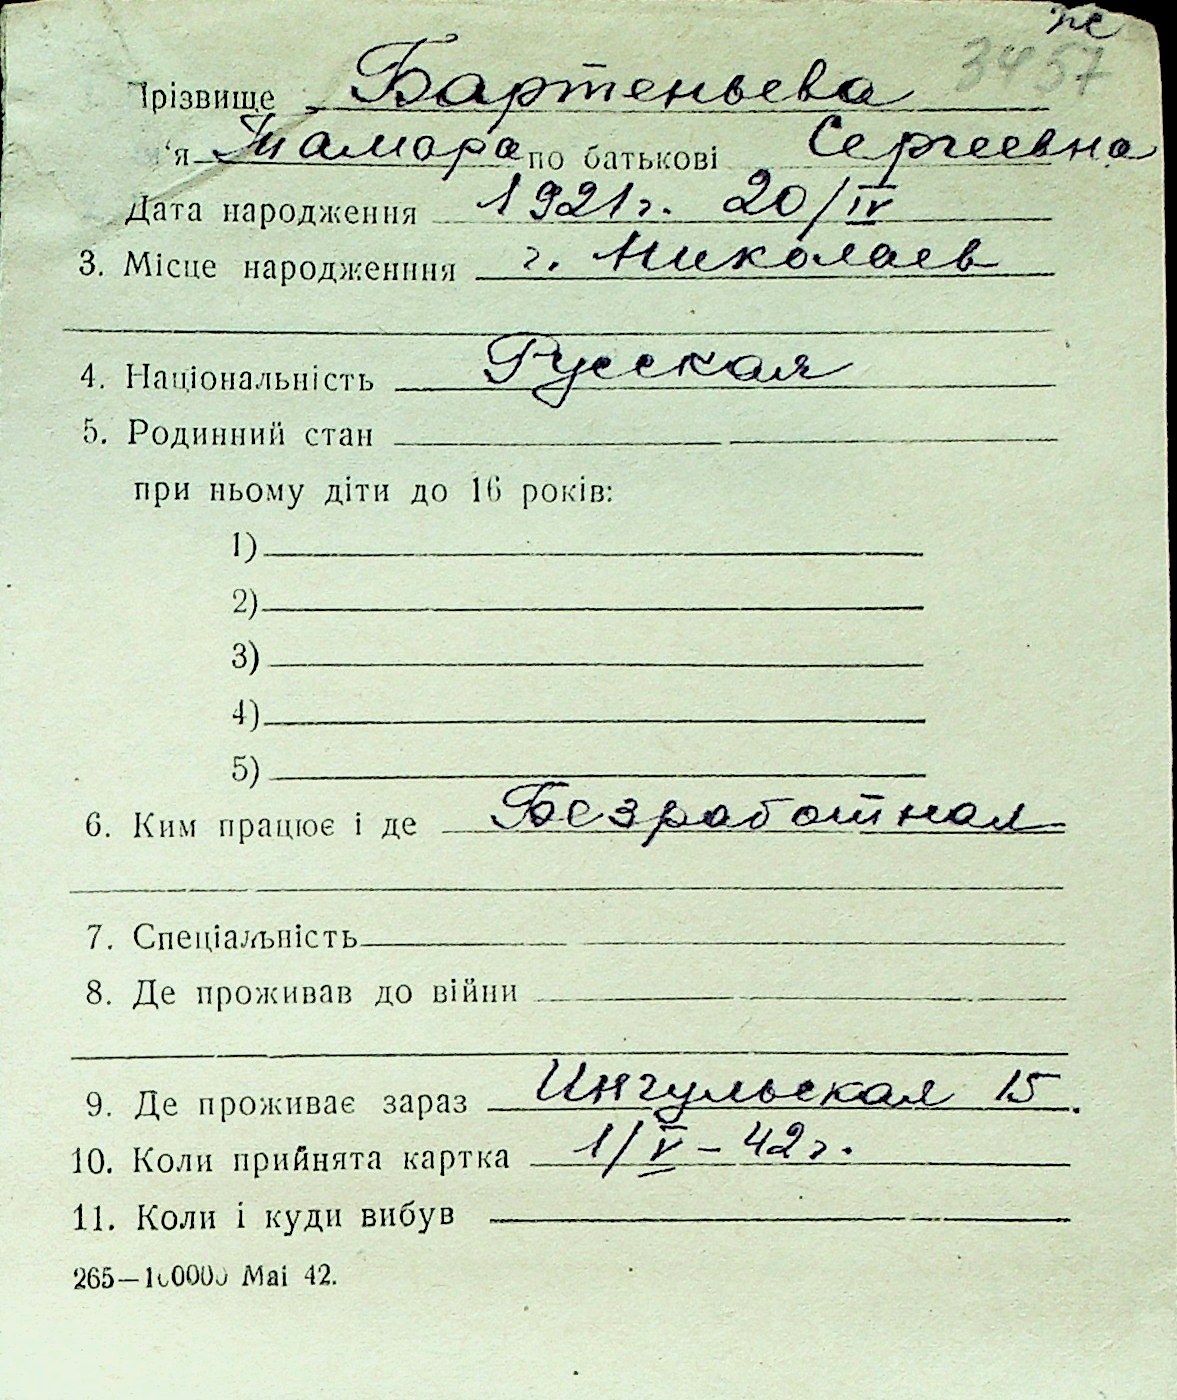 3457
Прізвище Бартеньева
'я Тамара по батькові Сергеевна
Дата народження 1921г. 20/IV
3. Місце народженння г. Николаев
4. Національність Русская
5. Родинний стан
при ньому діти до 16 років:
1)
2)
3)
4)
5)
6. Ким працює і де Безработная
7. Спеціальність
8. Де проживав до війни
9. Де проживає зараз Ингульская 15.
10. Коли прийнята картка 1/V – 42г.
11. Коли і куди вибув
265—100000 Mai 42.